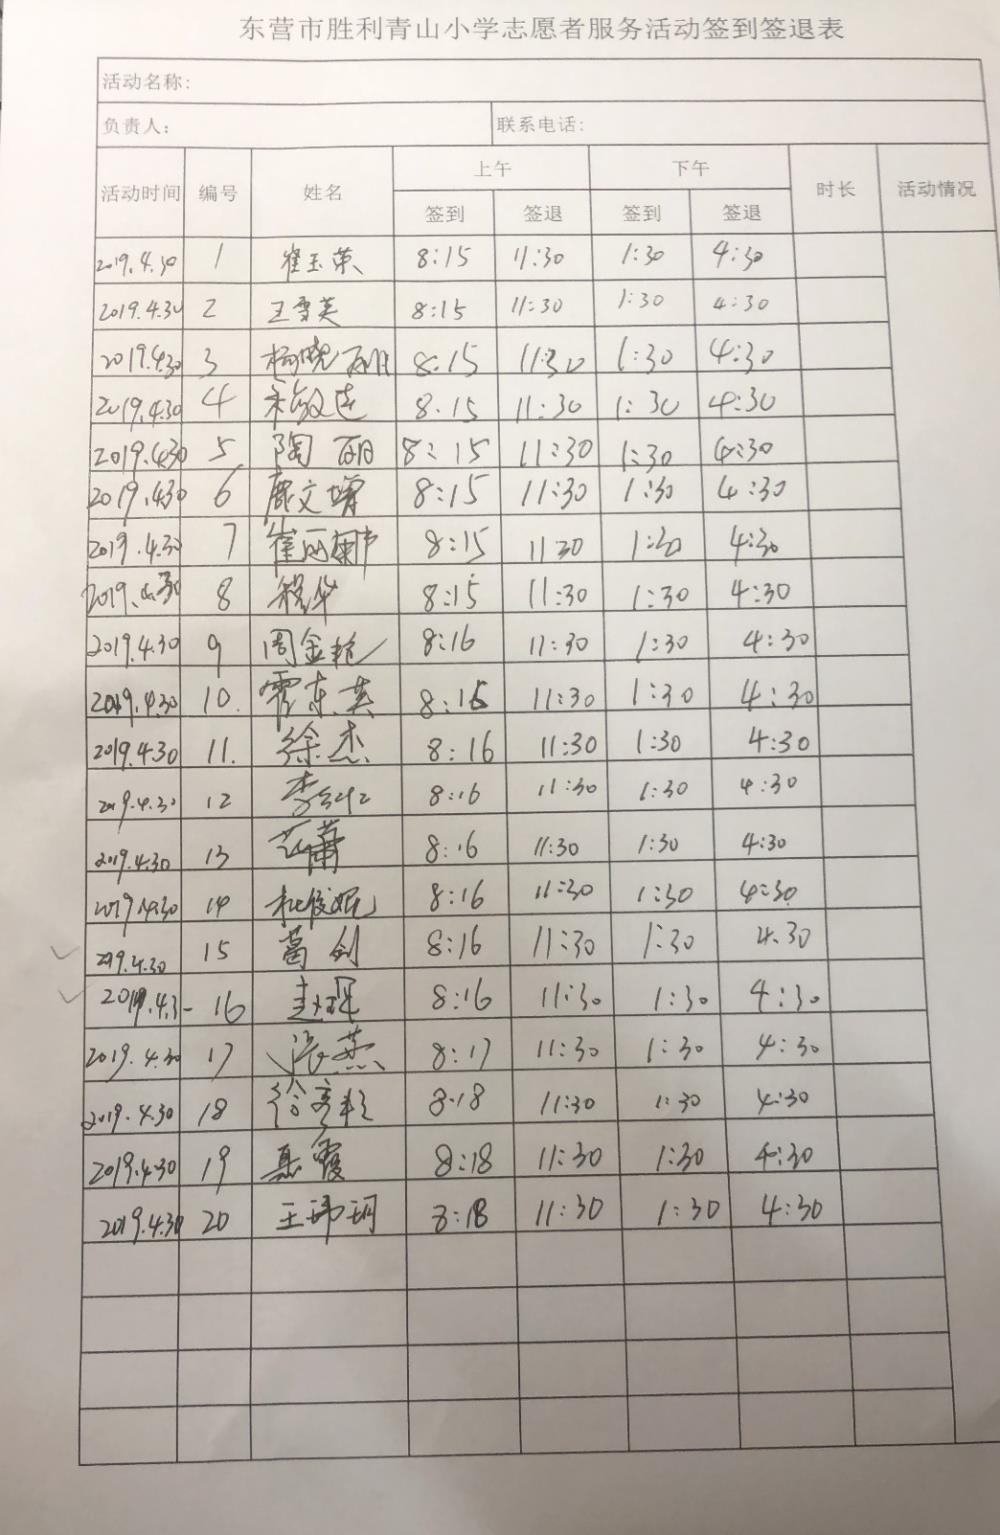 东营市胜利青山小学志愿者服务活动签到签退表
活动名称:
负责人: 联系电话:
活动时间 编号 姓名 上午 下午 时长 活动情况
签到 签退 签到 签退
2019.4.30 1 崔玉荣 8:15 11:30 1:30 4:30
2019.4.30 2 王雪英 8:15 11:30 1:30 4:30
2019.4.30 3 杨晓丽 8:15 11:30 1:30 4:30
2019.4.30 4 8.15 11:30 1:30 4:30
2019.4.30 5 陶丽 8:15 11:30 1:30 4:30
2019.4.30 6 鹿文增 8:15 11:30 1:30 4:30
2019.4.30 7 崔丽娜 8:15 11 30 1:30 4:30
2019.4.30 8 程华 8:15 11:30 1:30 4:30
2019.4.30 9 周金艳 8:16 11:30 1:30 4:30
2019.4.30 10. 霍东英 8:16 11:30 1:30 4:30
2019.4.30 11. 徐杰 8:16 11:30 1:30 4:30
2019.4.30 12 李 8:16 11:30 1:30 4:30
2019.4.30 13 8:16 11:30 1:30 4:30
2019.4.30 14 8:16 11:30 1:30 4:30
2019.4.30 15 葛剑 8:16 11:30 1:30 4.30
2019.4.3- 16 赵琨 8:16 11:30 1:30 4:30
2019.4.30 17 张燕 8:17 11:30 1:30 4:30
2019.4.30 18 徐彦 8.18 11:30 1:30 4:30
2019.4.30 19 聂霞 8:18 11:30 1:30 4:30
2019.4.30 20 王玮珂 8:18 11:30 1:30 4:30